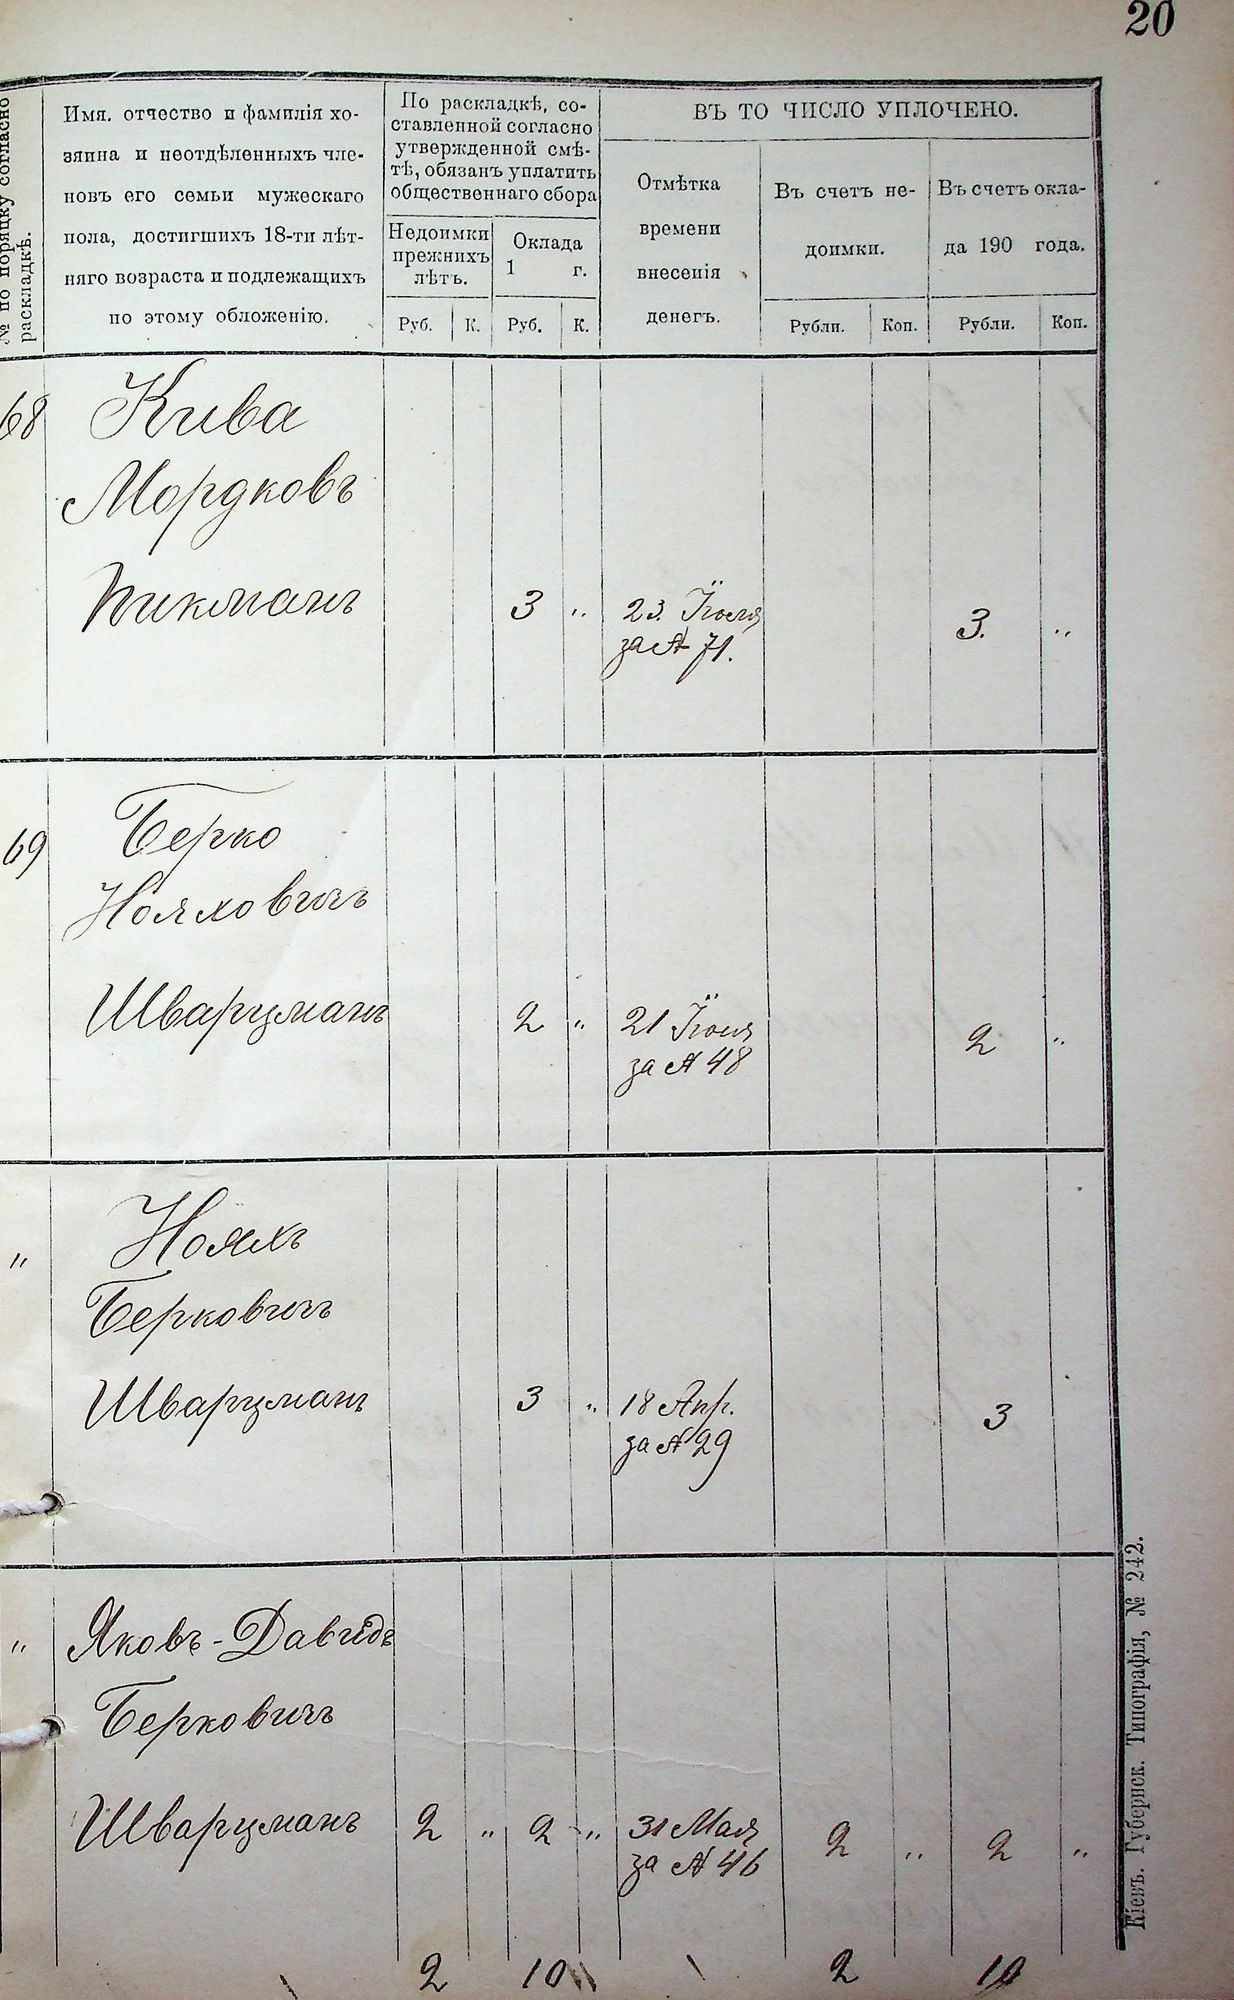 20
№ по порядку согласно
раскладкѣ.
Имя, отчество и фамилія хо-
зяина и неотдѣленныхъ чле-
новъ его семьи мужескаго
пола, достигшихъ 18-ти лѣт-
няго возраста и подлежащихъ
по этому обложенію.
По раскладкѣ, со-
ставленной согласно
утвержденной смѣ-
тѣ, обязанъ уплатить
общественнаго сбора
Недоимки
прежнихъ
лѣтъ.
Оклада
1 г.
Руб. К. Руб. К.
ВЪ ТО ЧИСЛО УПЛОЧЕНО.
Отмѣтка
времени
внесенія
денегъ.
Въ счетъ не-
доимки.
Рубли. Коп.
Въ счетъ окла-
да 190 года.
Рубли. Коп.
68 Кива
Мордковъ
Пикманъ 3 " 23 Іюля 3. "
за № 71.
69 Берко
Нояховичъ
Шварцманъ 2 " 21 Іюня 2 "
за № 48
" Нояхъ
Берковичъ
Шварцманъ 3 " 18 Апр. 3
за № 29
" Яковъ-Давидъ
Берковичъ
Шварцманъ 2 " 2 " 31 Мая 2 " 2 "
за № 46
2 10 2 10
Кіевъ. Губернск. Типографія, № 242.